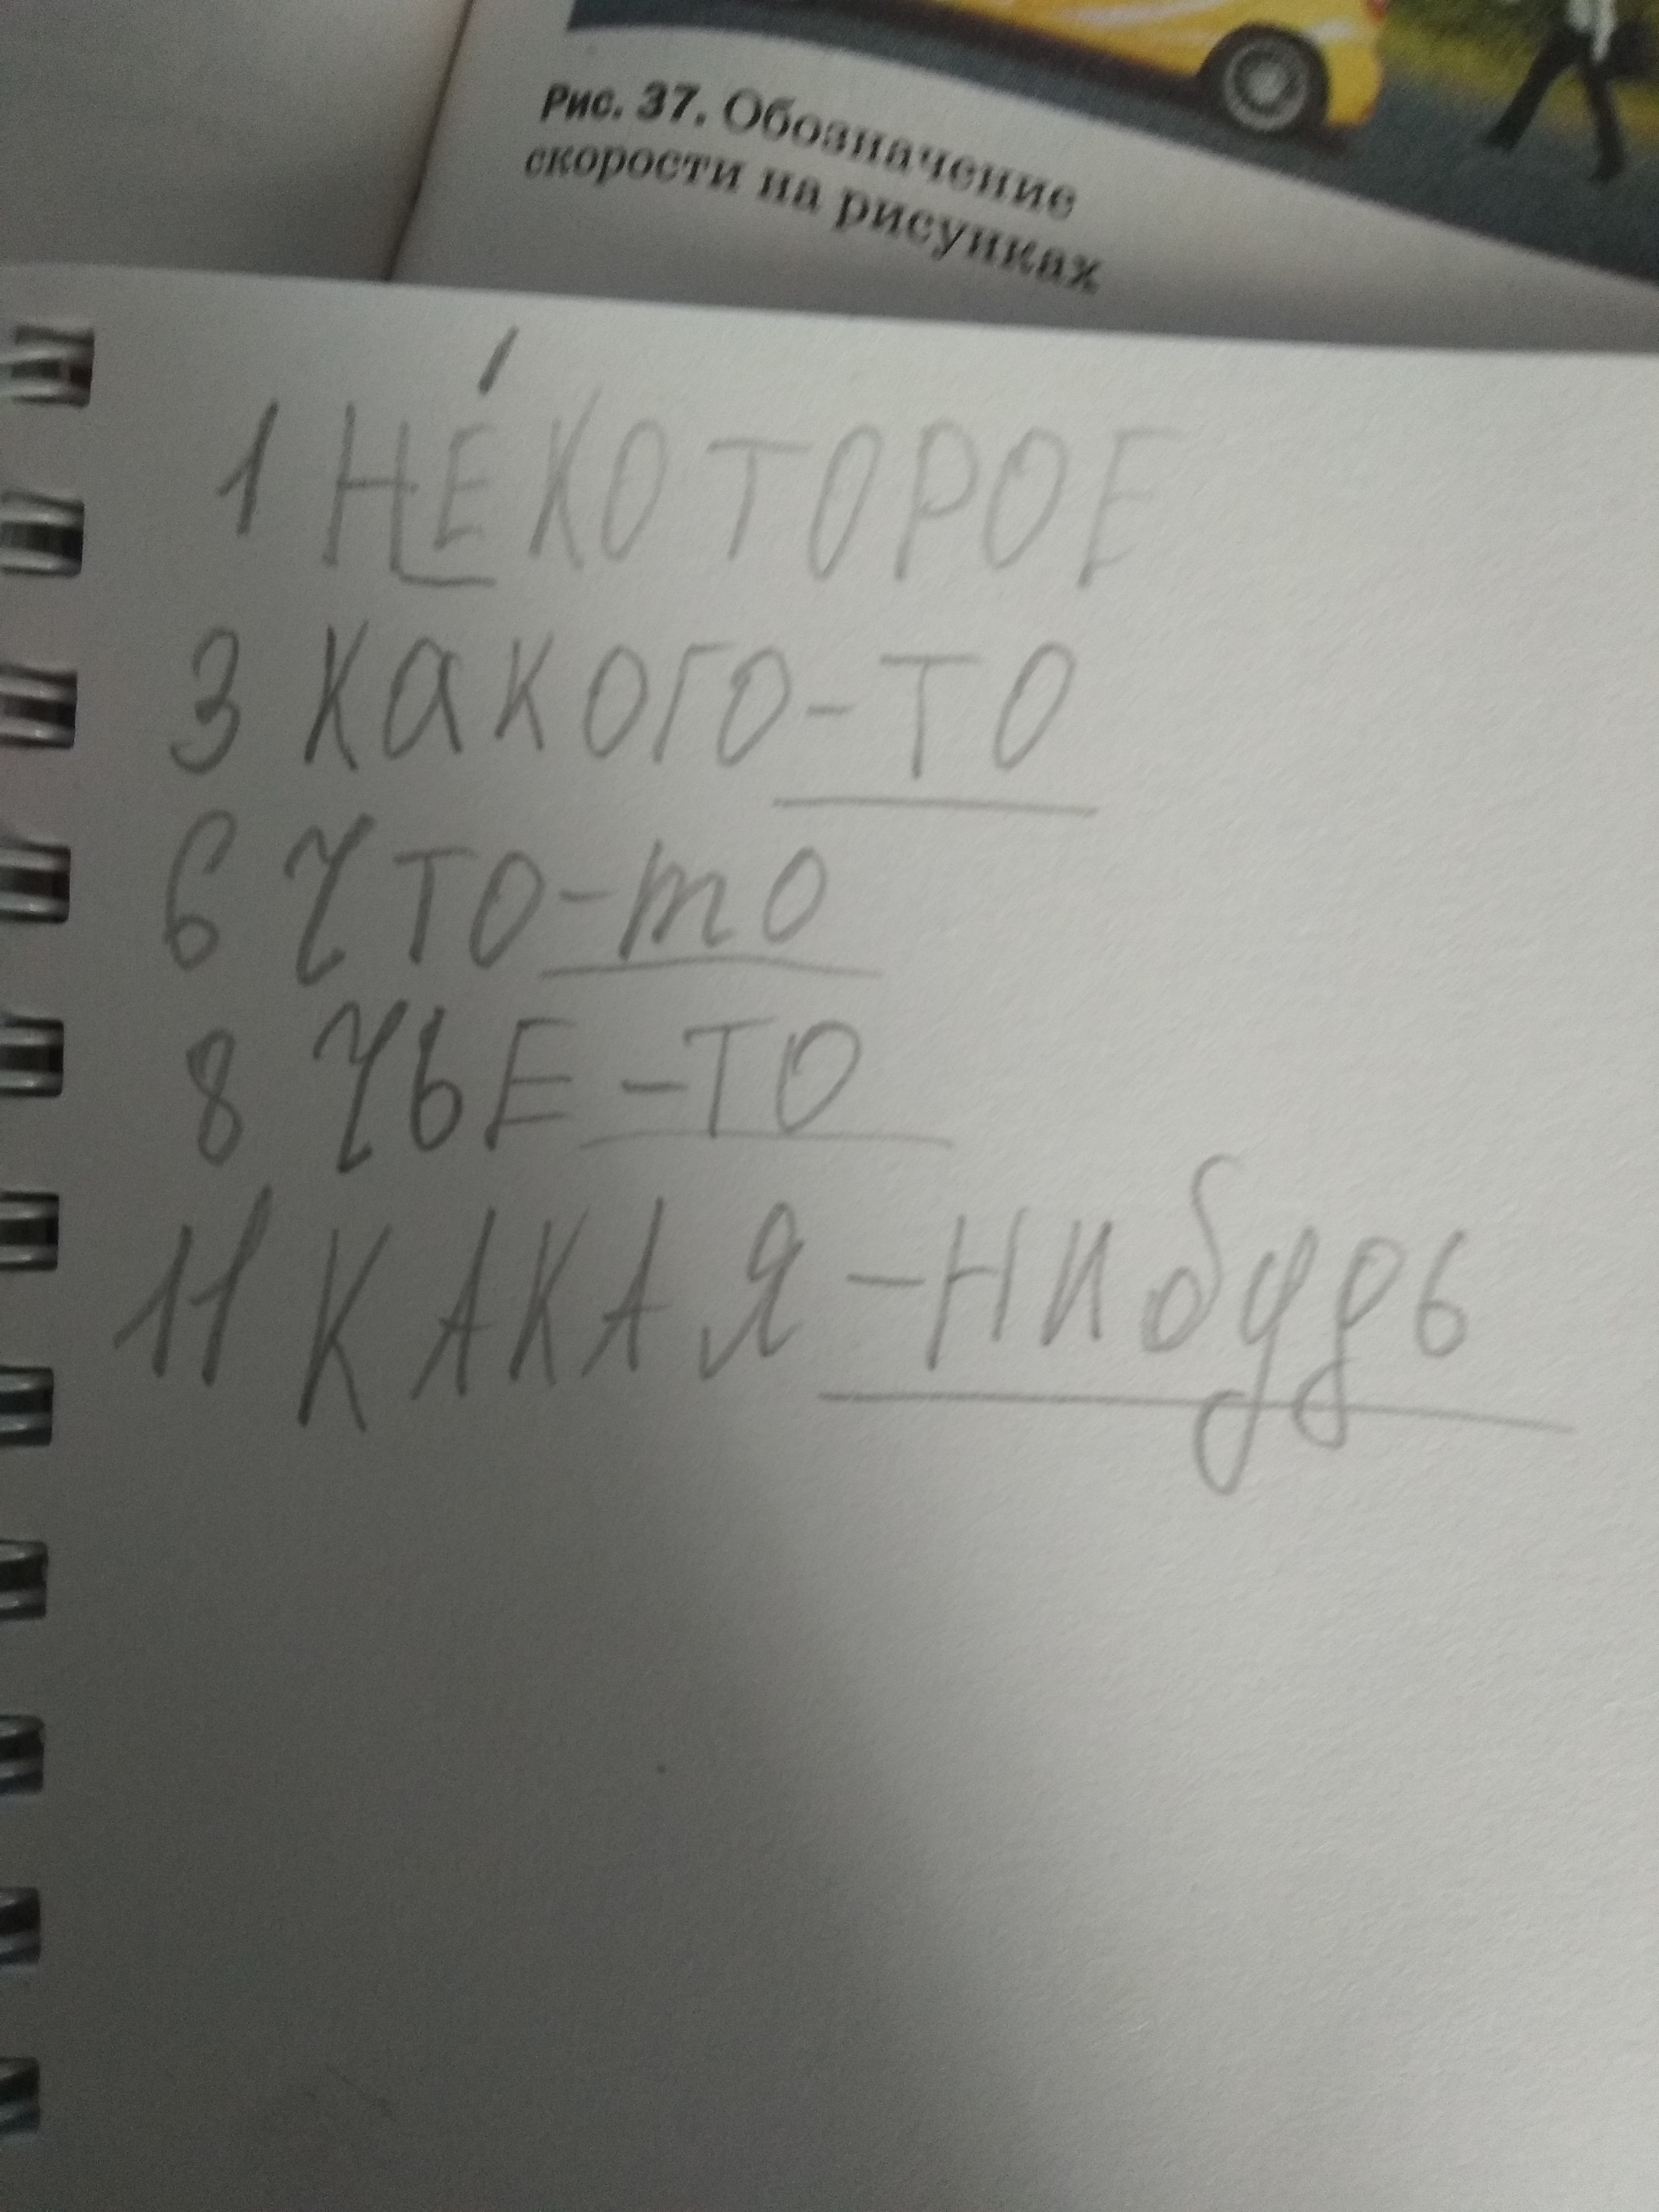 Рис. 37. Обозначение
скорости на рисунках
1 НЕ́КОТОРОЕ
3 КАКОГО-ТО
6 ЧТО-то
8 ЧЬЕ-ТО
11 КАКАЯ-НИбудь